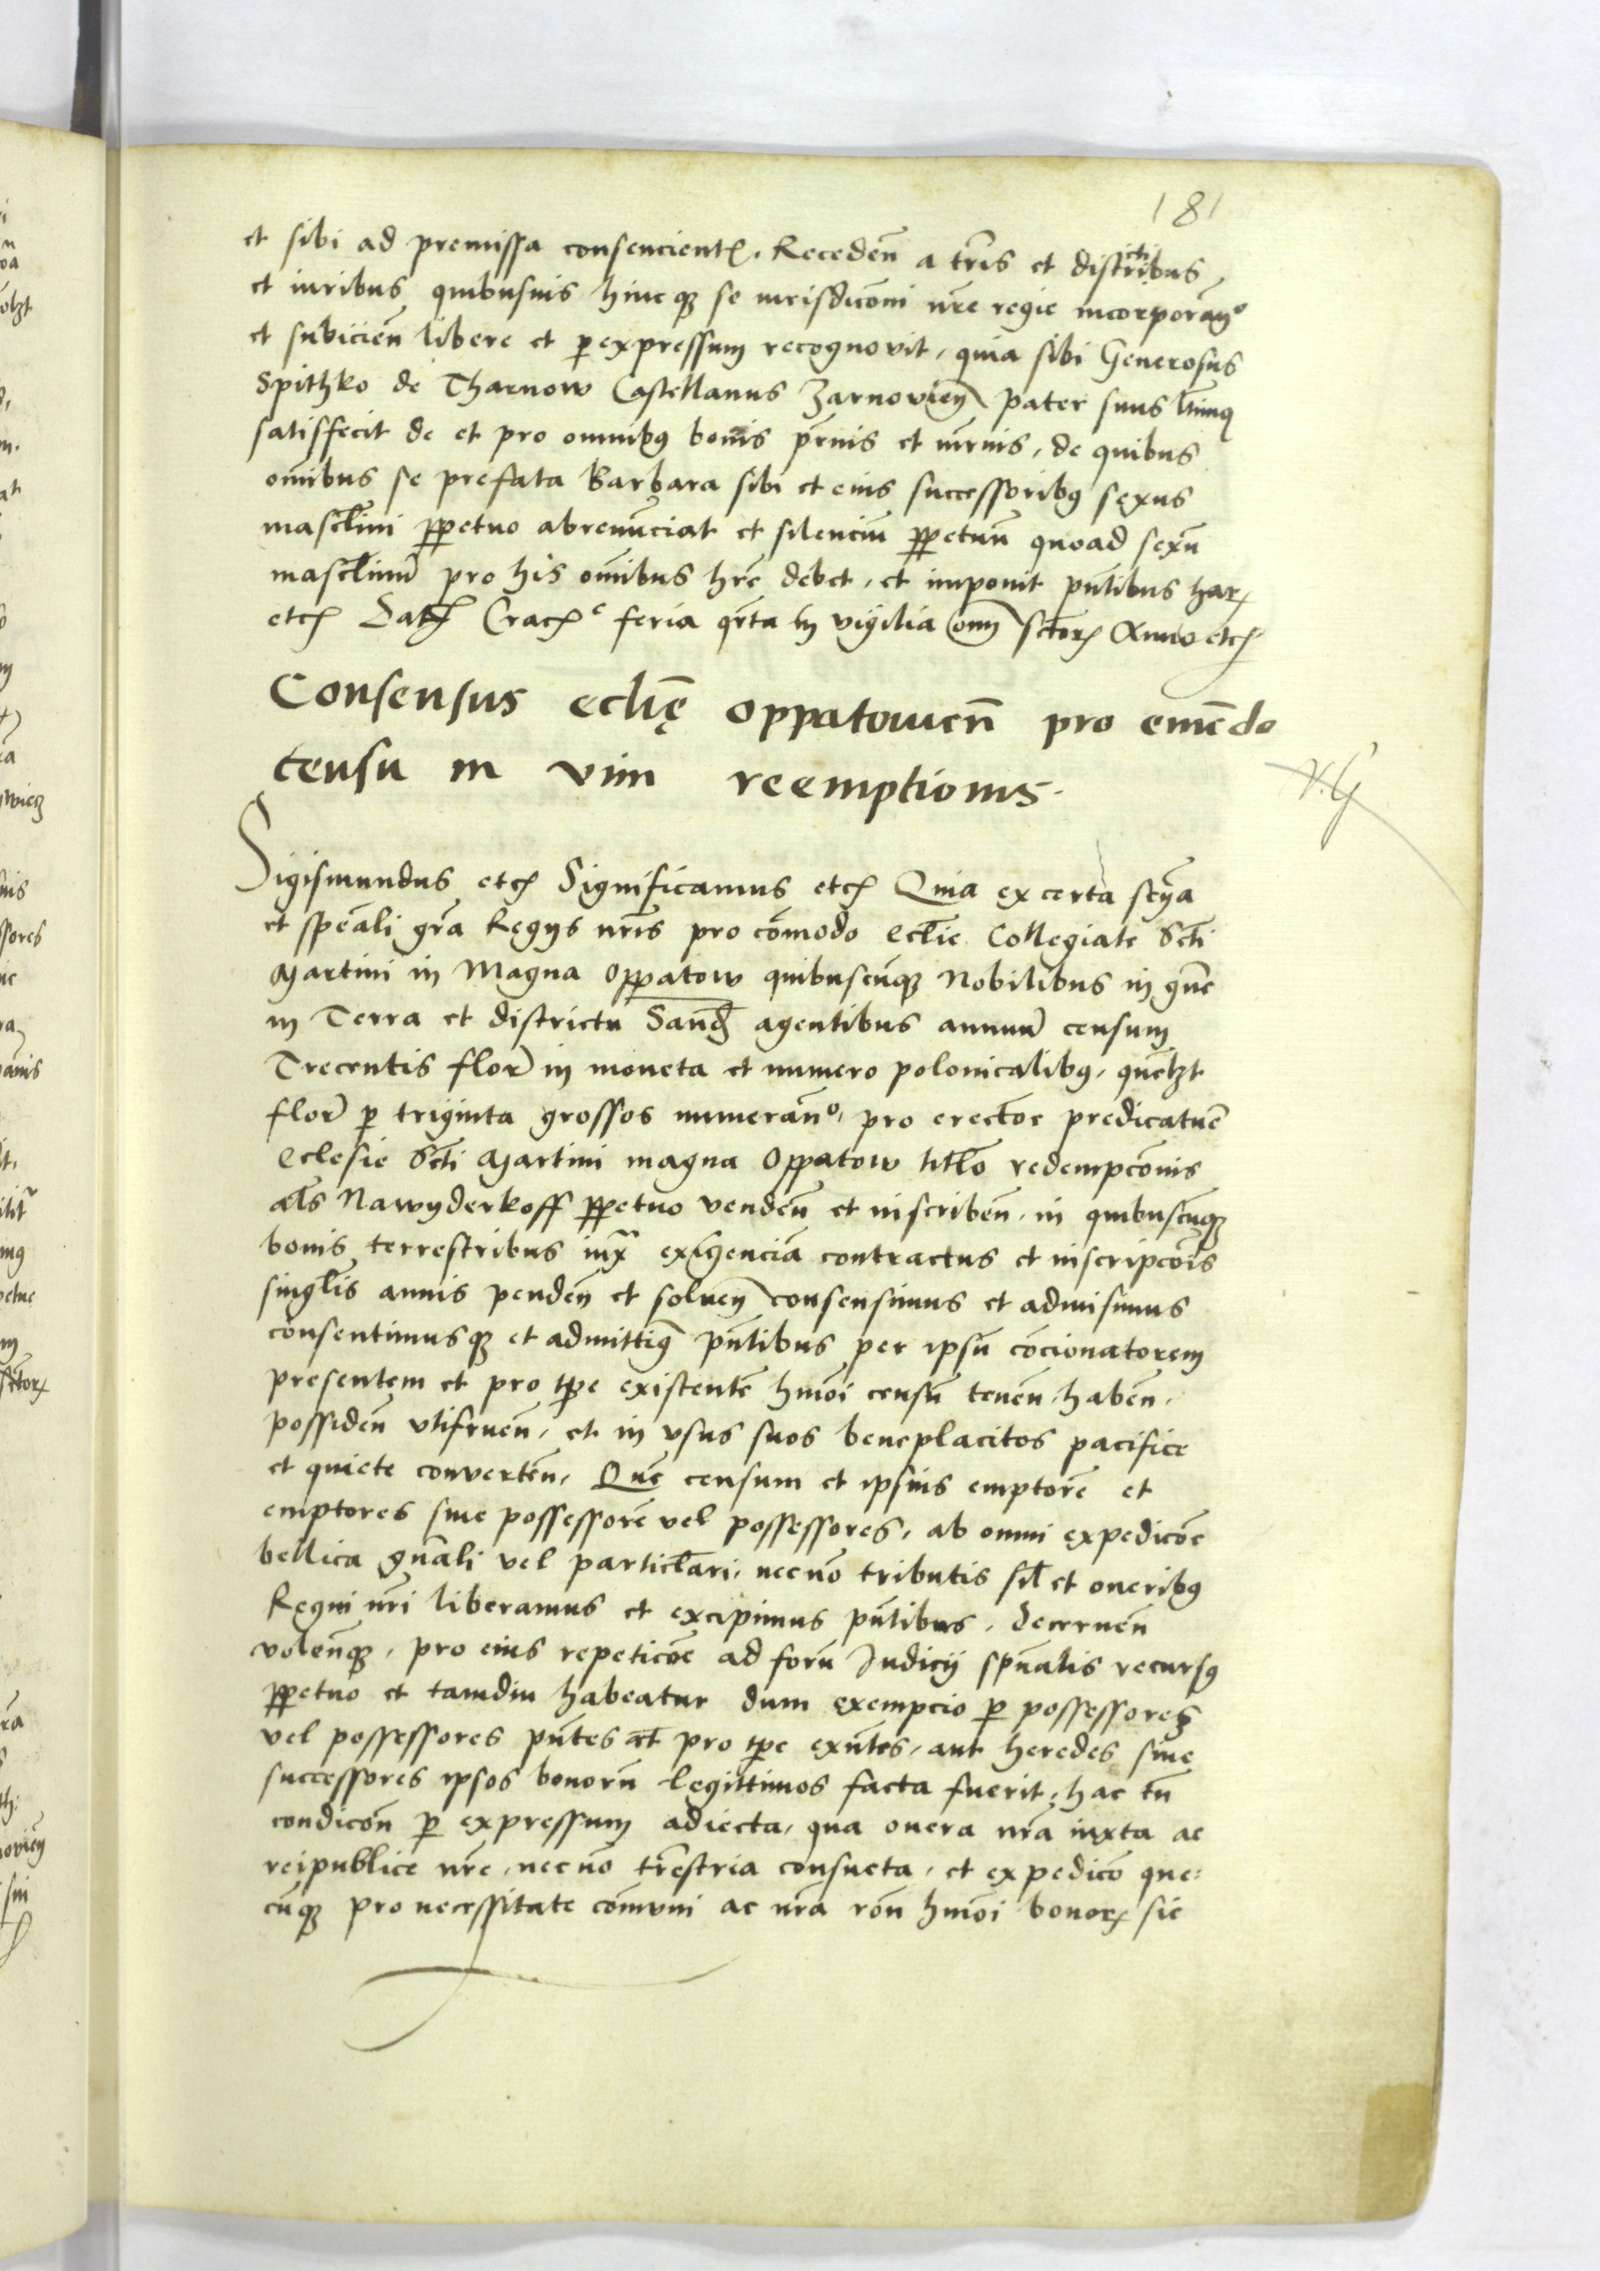 181
et sibi ad premissa consencient. Receden a tr̃is et districtibus
et iuribus quibusuis hincq se iurisdicõni nr̃e regie incorporan̄º
et subiicien̄ libere et p expressum recognovit, quia sibi Generosus
Spithko de Tharnow Castellanus Zarnovien̄ pater suus
satisfecit de et pro omnibꝰ bonis pr̃nis et mr̃nis, de quibus
om̄ibus se prefata Barbara sibi et eius successoribꝰ sexus
mascl̄ini ppetuo abrenūciat et silenciū ppetuū quoad sexū
mascl̄inū pro his om̄ibus hr̃e debet, et imponit pn̄tibus har
etc Dat Crac feria qr̃ta in vigilia om̄ sctor̄ Anno etc
Consensus eclię Oppatowien̄ pro emēdo
censu in vim reemptionis.
Sigismundus etc Significamus etc Quia ex certa scia
et spēali gr̃a Regijs nr̃is pro cōmodo Eclie Collegiate Scti
Martini in Magna Oppatow quibuscūq Nobilibus in gn̄e
in Terra et districtu Sand agentibus annuū censum
Trecentis flor̄ in moneta et numero polonicalibꝰ, quelzt
flor̄ p triginta grossos numeran̄º, pro erectōe predicature
Eclesie Scti Martini magna Oppatow titlo redempcōnis
al̄s Nawyderkoff ppetuo venden̄ et inscriben̄, in quibuscūq
bonis terrestribus iux exigenciā contractus et inscripcōis
singl̄is annis penden̄ et soluen̄ consensimus et admisimus
consentimusq et admittimꝰ pn̄tibus per ipsū concionatorem
presentem et pro tp̄e existentē hmōi censū tenen̄, haben̄,
possiden̄ utifruen̄, et in usus suos beneplacitos pacifice
et quiete converten̄, Quē censum et ipsius emptorē et
emptores siue possessorē vel possessores, ab omni expedicōe
bellica gn̄ali vel particl̄ari, necnō tributis sil̄ et oneribꝰ
Regni nr̃i liberamus et excipimus pn̄tibus, decernen̄
volen̄q, pro eius repeticōe ad forū Judicij spūalis recursꝰ
ppetuo et tamdiu habeatur dum exempcio p possessores
vel possessores pn̄tes et pro tp̄e exn̄tes, aut heredes siue
successores ipsos bonorū legittimos facta fuerit, hac tn̄
condicōn p expressum adiecta, qua onera nr̃a iuxta ac
reipublice nr̃e, necnō tr̃estria consueta, et expedicō que=
cūq pro necessitate cōmuni ac nr̃a rōn hmōi bonor̄ sic